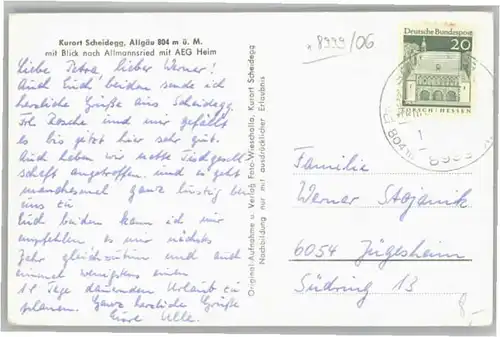 Kurort Scheidegg, Allgäu 804 m ü. M.
mit Blick nach Allmannsried mit AEG Heim
Liebe Petra, lieber Werner!
Auch Euch beiden sende ich
herzliche Grüße aus Scheidegg.
und mir gefällt
es bis jetzt hier sehr gut.
Auch haben wir nette Tischgesell
schaft angetroffen. und es geht
manchesmal ganz lustig bei
uns zu
Euch beiden kann ich nur
empfehlen es mir nächstes
Jahr gleichzutun und auch
einmal wenigstens einen
Tage dauernden Urlaub zu
planen. Ganz herzliche Grüße
Eure Ulle.
Original-Aufnahme u. Verlag Foto-Wiescholla, Kurort Scheidegg
Nachbildung nur mit ausdrücklicher Erlaubnis
8999/06
Deutsche Bundespost
20
LORSCH/HESSEN
8999
Familie
Werner
6054 Jügesheim
Südring 13
8,-